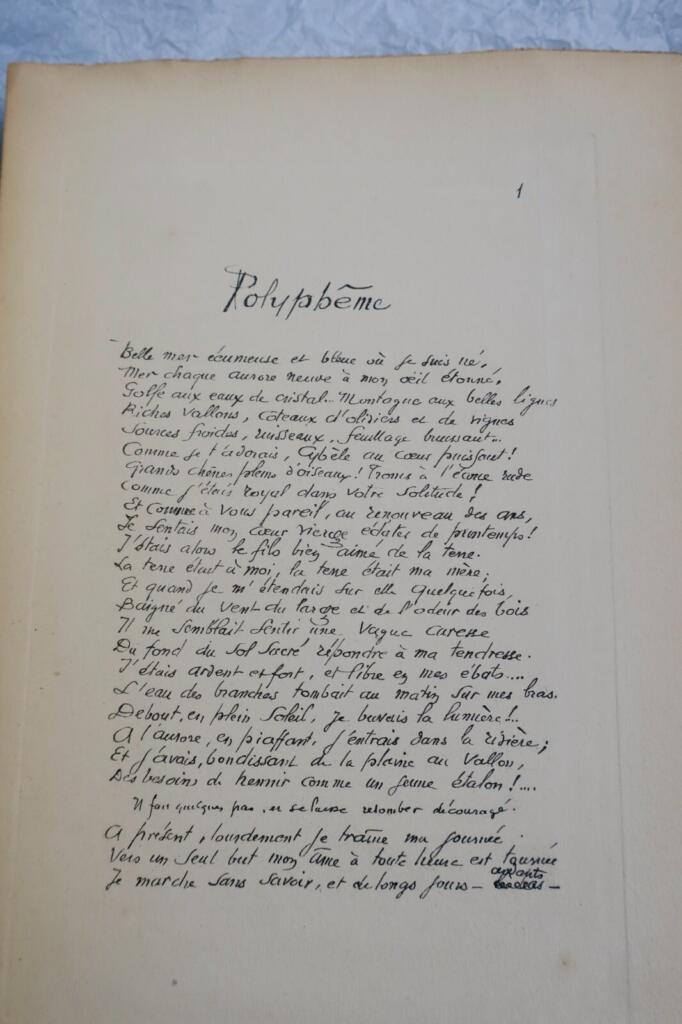 1
Polyphème
Belle mer écumeuse et bleue où je suis né,
Mer chaque aurore neuve à mon œil étonné,
Golfe aux eaux de cristal... Montagne aux belles lignes
Riches vallons, côteaux d'oliviers et de vignes
Sources froides, ruisseaux, feuillage bruissant...
Comme je t'adorais, Cybèle au cœur puissant!
Grands chênes pleins d'oiseaux! Troncs à l'écorce rude
Comme j'étais royal dans votre solitude!
Et comme à vous pareil, au renouveau des ans,
Je sentais mon cœur vierge éclater de printemps!
J'étais alors le fils bien aimé de la terre.
La terre était à moi, la terre était ma mère;
Et quand je m'étendais sur elle quelquefois,
Baigné du vent du large et de l'odeur des bois
Il me semblait sentir une vague caresse
Du fond du sol sacré répondre à ma tendresse.
J'étais ardent et fort, et libre en mes ébats....
L'eau des branches tombait au matin sur mes bras.
Debout, en plein soleil, je buvais la lumière!..
A l'aurore, en piaffant, j'entrais dans la rivière;
Et j'avais, bondissant de la plaine au vallon,
Des besoins de hennir comme un jeune étalon!....
Il fait quelques pas, et se laisse retomber découragé.
A présent, lourdement je traîne ma journée
Vers un seul but mon âme à toute heure est tournée
Je marche sans savoir, et de longs jours — ardents —